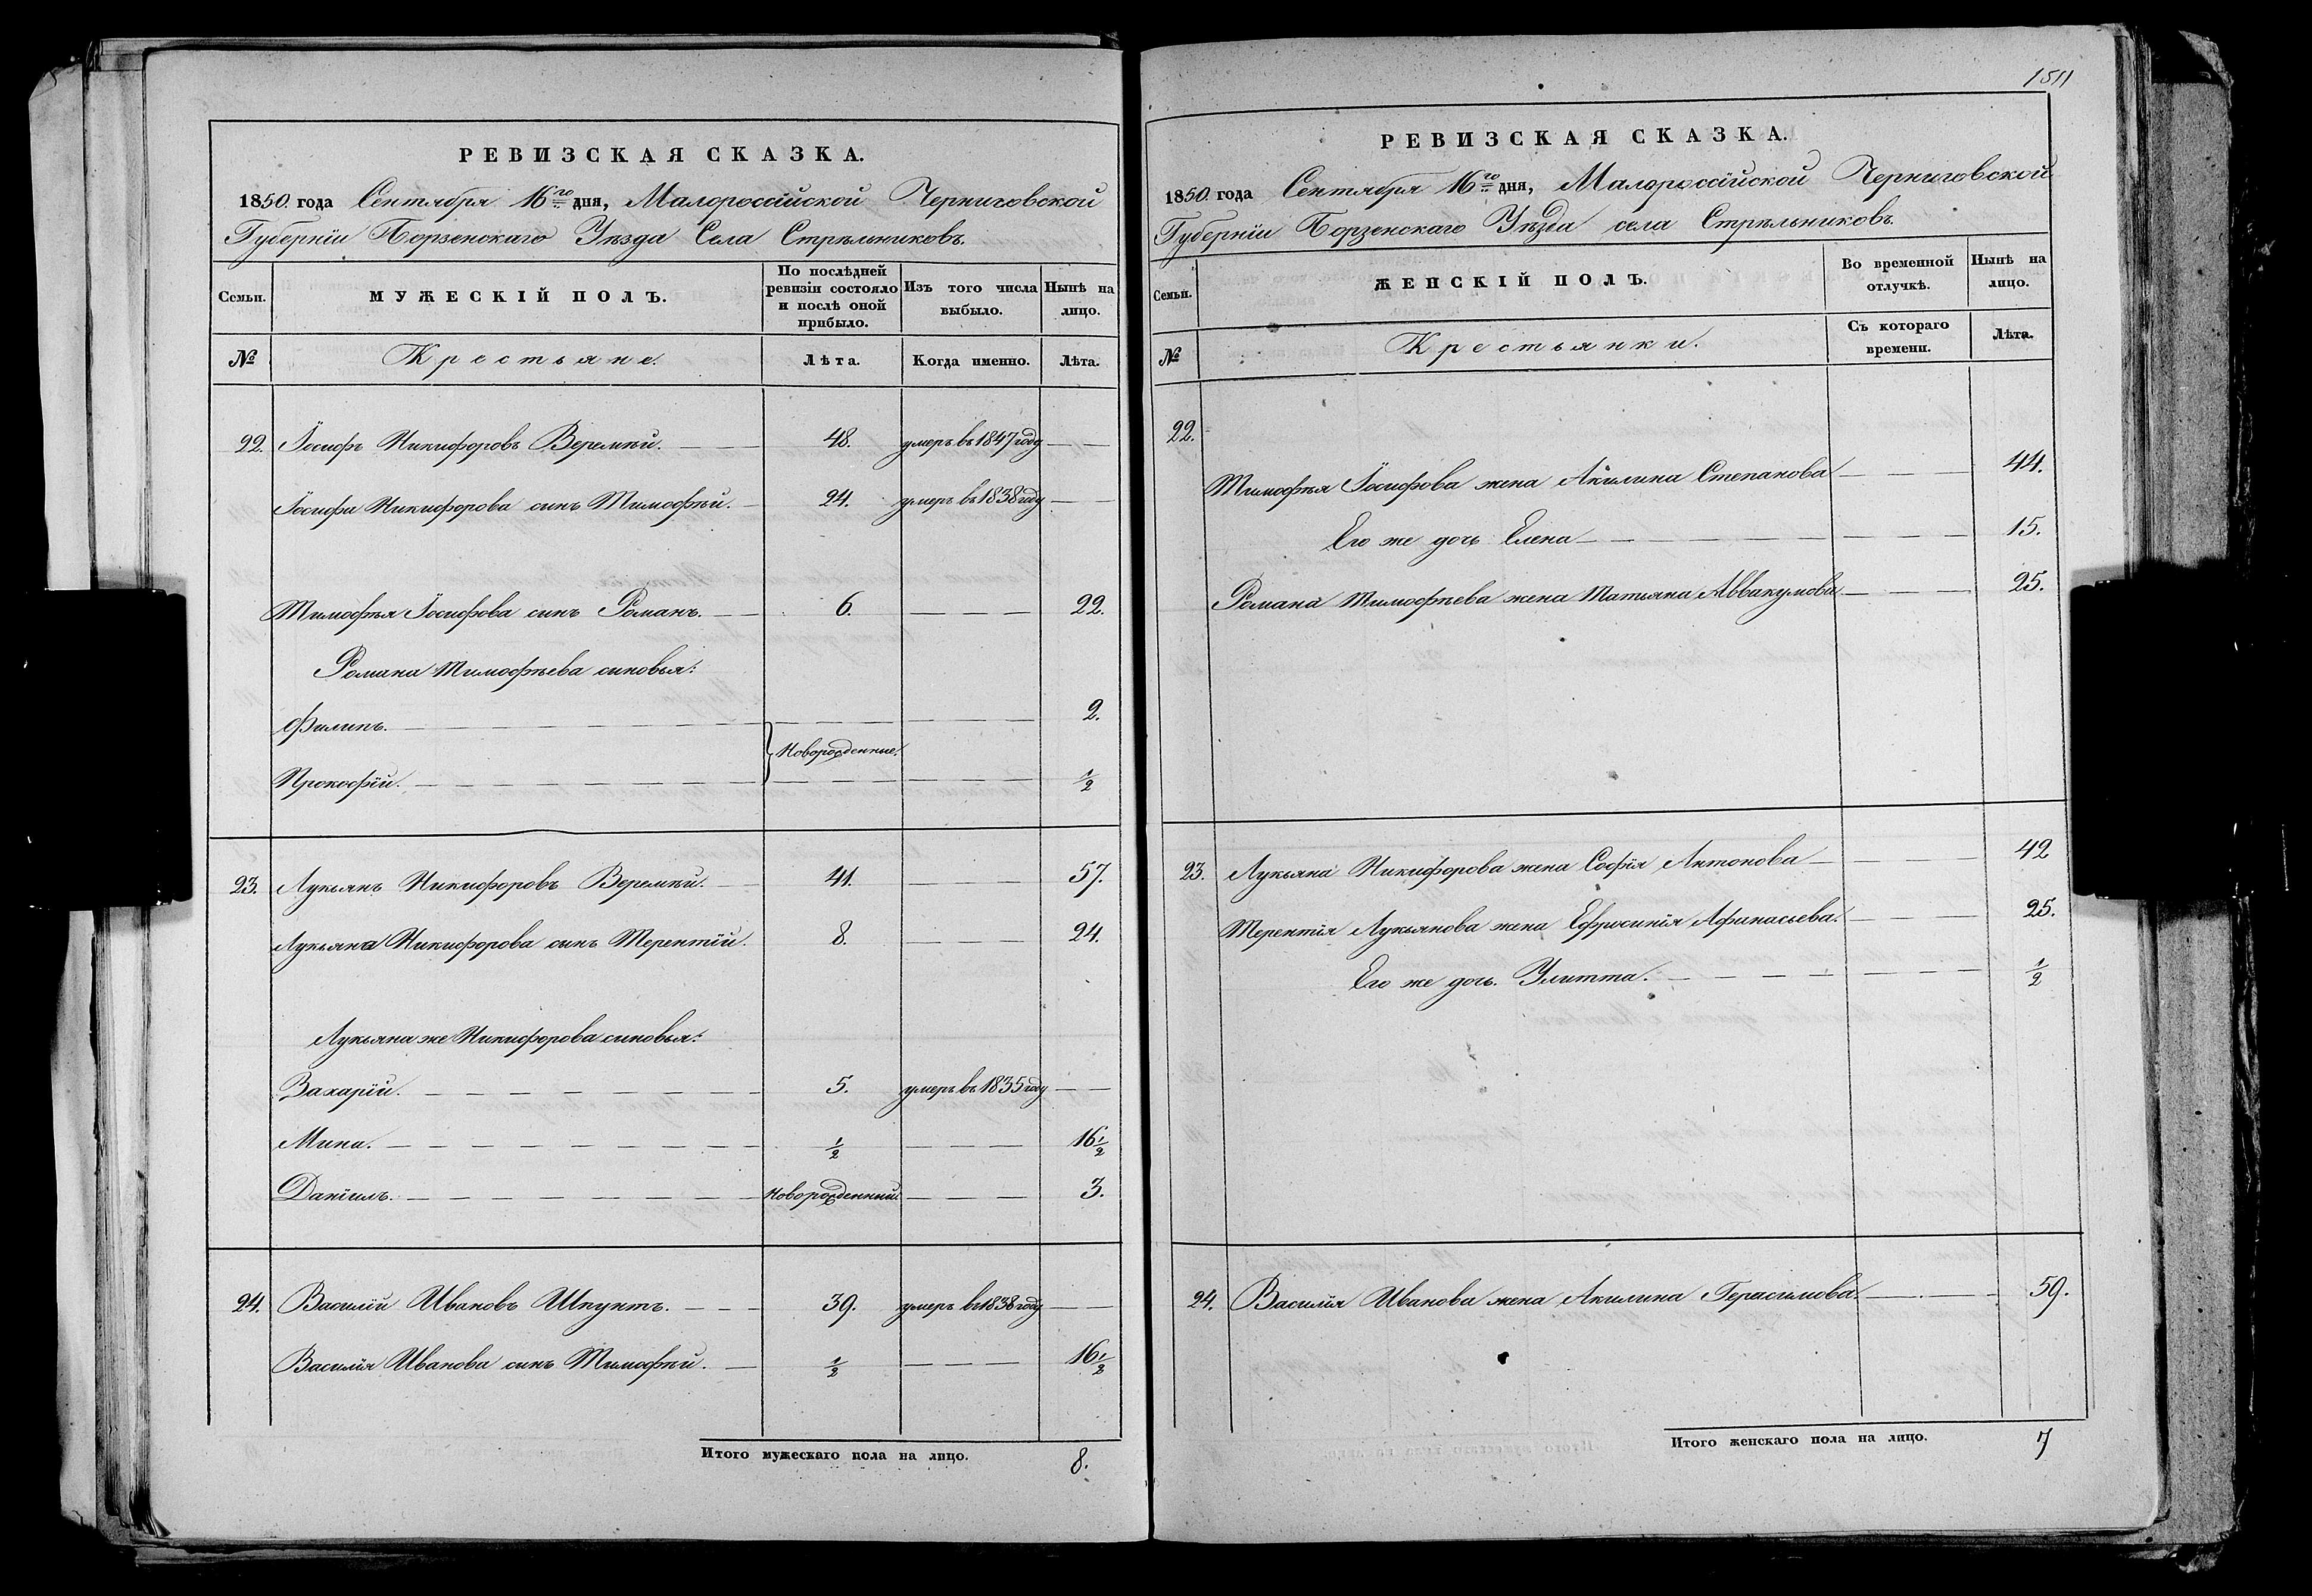 РЕВИЗСКАЯ СКАЗКА.
1850. года Сентября 16го дня, Малороссійской Черниговской
Губерніи Борзенскаго Уѣзда Села Стрѣльниковъ.
Семьи. МУЖЕСКІЙ ПОЛЪ. По послѣдней ревизіи состояло и послѣ оной прибыло. Изъ того числа выбыло. Нынѣ на лицо.
№ Крестьяне. Лѣта. Когда именно. Лѣта.
22. Іосифъ Никифоровъ Веремѣй. 48. умеръ въ 1847 году
Іосифа Никифорова сынъ Тимофѣй. 24. умеръ въ 1838 году
Тимофѣя Іосифова сынъ Романъ. 6. 22.
Романа Тимофѣева сыновья:
Филипъ. 2.
Новорожденные.
Прокофій. 1/2
23. Лукьянъ Никифоровъ Веремѣй. 41. 57.
Лукьяна Никифорова сынъ Терентій. 8. 24.
Лукьяна же Никифорова сыновья:
Захарій. 5. умеръ въ 1835 году
Мина. 1/2 16 1/2
Даніилъ. Новорожденный. 3.
24. Василій Ивановъ Шкунтъ. 39. умеръ въ 1838 году
Василія Иванова сынъ Тимофѣй. 1/2 16 1/2
Итого мужескаго пола на лицо. 8.
1511
РЕВИЗСКАЯ СКАЗКА.
1850. года Сентября 16го дня, Малороссійской Черниговской
Губерніи Борзенскаго Уѣзда села Стрѣльниковъ.
Семьи. ЖЕНСКІЙ ПОЛЪ. Во временной отлучкѣ. Нынѣ на лицо.
№ Крестьянки. Съ котораго времени. Лѣта.
22.
Тимофѣя Іосифова жена Акилина Степанова 44.
Его же дочь Елена 15.
Романа Тимофѣева жена Татьяна Аввакумова 25.
23. Лукьяна Никифорова жена Софія Антонова 42
Терентія Лукьянова жена Ефросинія Афанасьева. 25.
Его же дочь. Улитта. 1/2
24. Василія Иванова жена Акилина Герасимова. 59.
Итого женскаго пола на лицо. 7